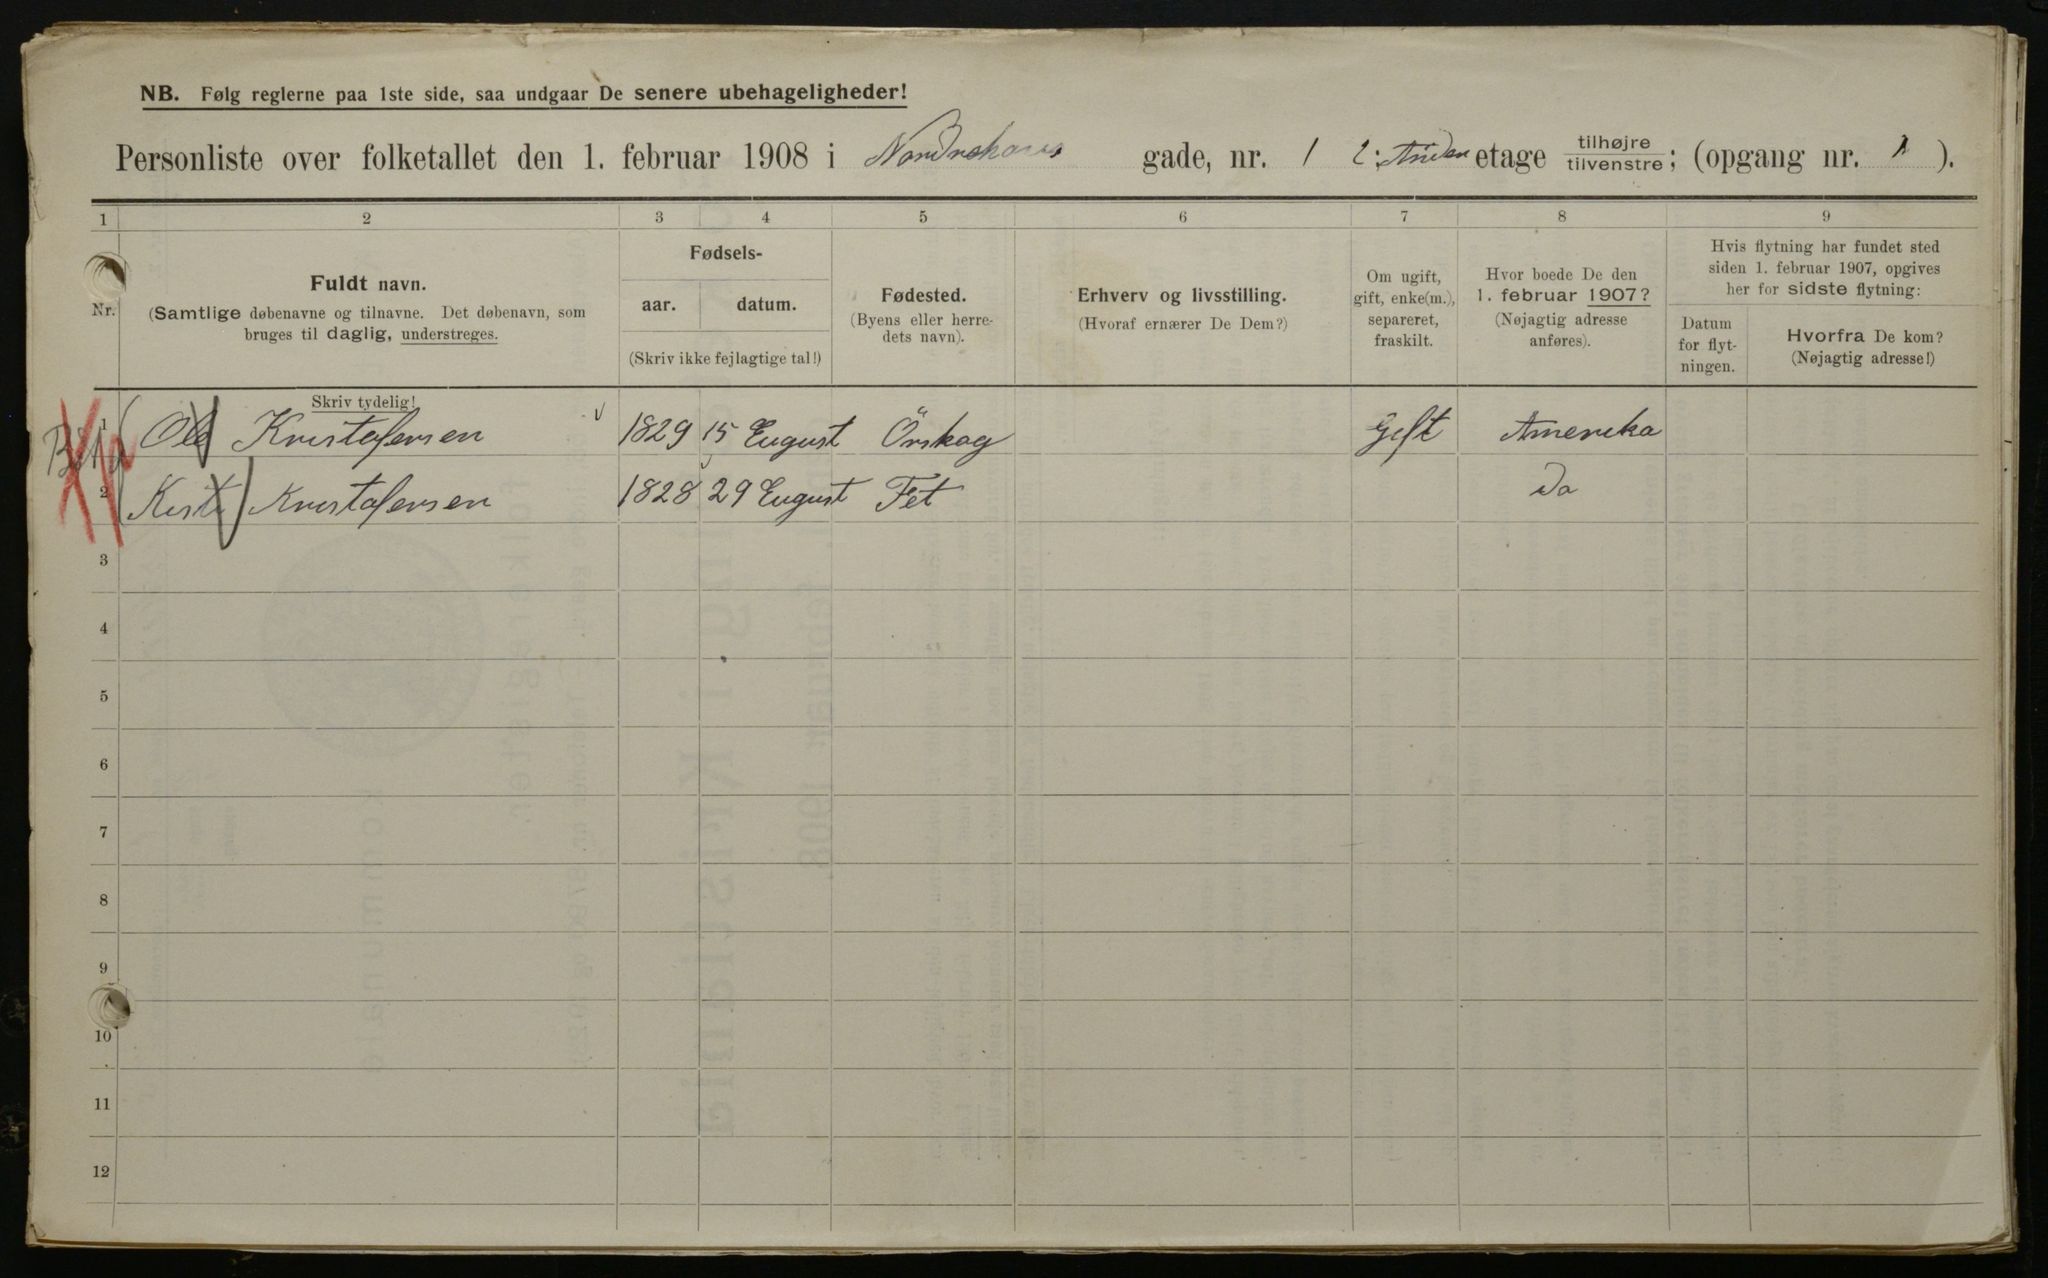 NB. Følg reglerne paa 1ste side, saa undgaar De senere ubehageligheder!
Personliste over folketallet den 1. februar 1908 i Nordrehous gade, nr. 1 2: Anden etage tilhøjre / tilvenstre; (opgang nr. 1).
1 2 3 4 5 6 7 8 9
Nr.
Fuldt navn.
(Samtlige døbenavne og tilnavne. Det døbenavn, som
bruges til daglig, understreges.
Skriv tydelig!
Fødsels-
aar. datum.
(Skriv ikke fejlagtige tal!)
Fødested.
(Byens eller herre-
dets navn).
Erhverv og livsstilling.
(Hvoraf ernærer De Dem?)
Om ugift,
gift, enke(m.),
separeret,
fraskilt.
Hvor boede De den
1. februar 1907?
(Nøjagtig adresse
anføres).
Hvis flytning har fundet sted
siden 1. februar 1907, opgives
her for sidste flytning:
Datum
for flyt-
ningen.
Hvorfra De kom?
(Nøjagtig adresse!)
1 Ole Kristofersen 1829 15 Eugust Örskog Gift Amerika
2 Kisti Kristofersen 1828 29 Eugust Fet Do
3
4
5
6
7
8
9
10
11
12